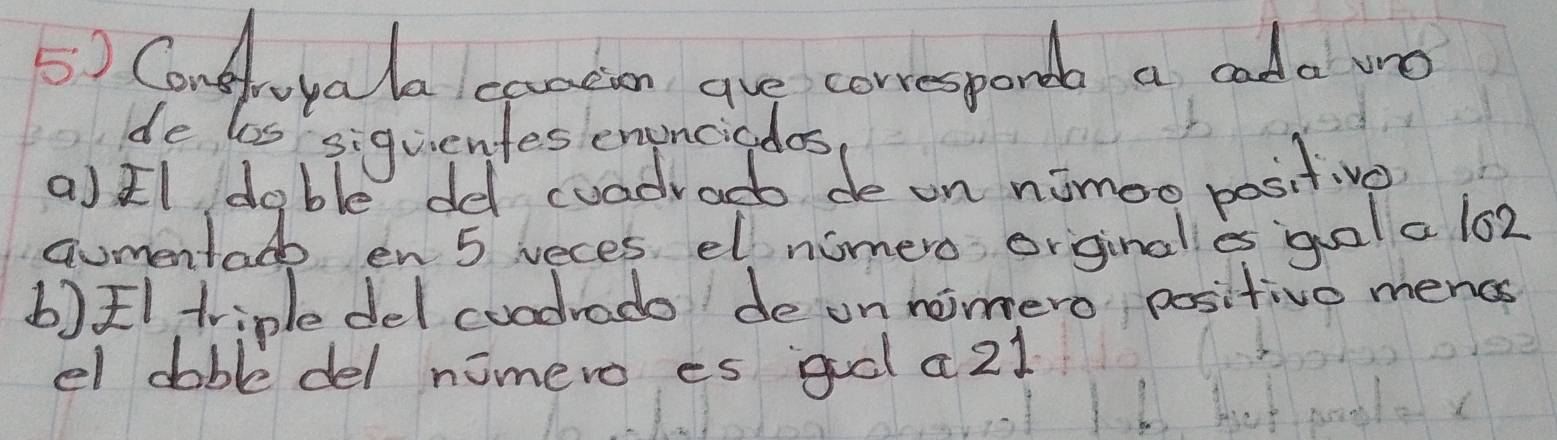 5) Construya la ecuación que corresponda a cada uno
de los siguientes enunciados.
a) El doble del cuadrado de un número positivo
aumentado en 5 veces el número original es igual a 102
b) El triple del cuadrado de un número positivo menos
el doble del número es igual a 21